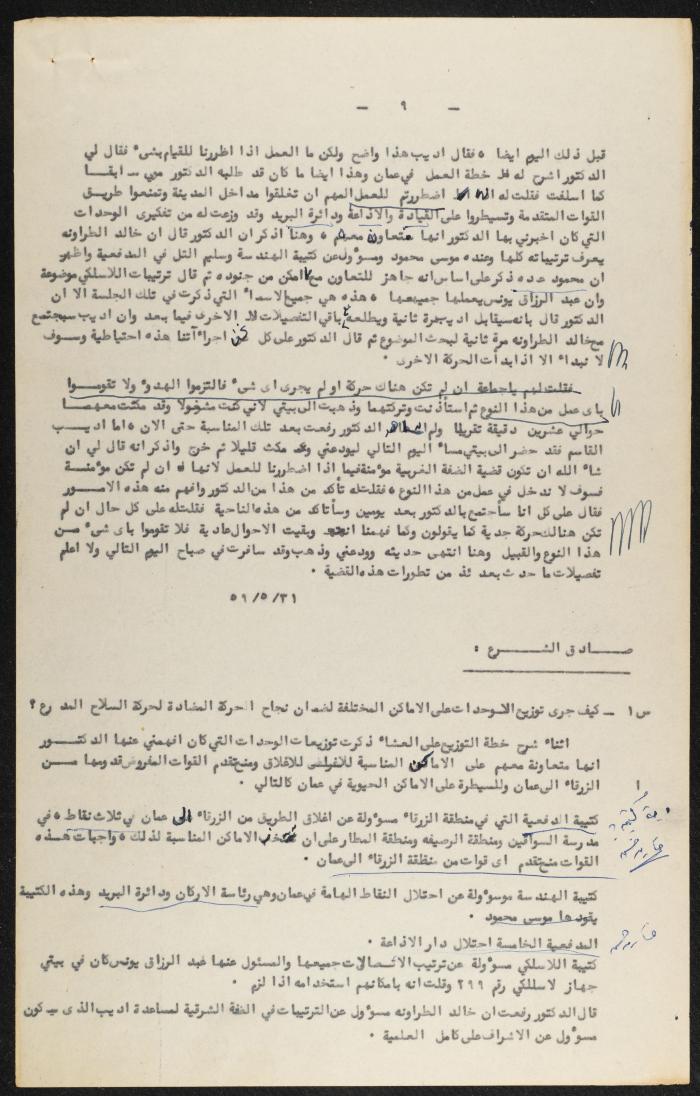 - ٩ -
قبل ذلك اليوم ايضا ٠ فقال اديب هذا واضح ولكن ما العمل اذا اظررنا للقيام بشىء فقال لي
الدكتور اشرح له خطة العمل في عمان وهذا ايضا ما كان قد طلبه الدكتور مني سابقا
كما اسلفت فقلت له اذا اضطررتم للعمل المهم ان تغلقوا مداخل المدينة وتمنعوا طريق
القوات المتقدمة وتسيطروا على القيادة والاذاعة ودائرة البريد وقد وزعت له من تفكيرى الوحدات
التي كان اخبرني بها الدكتور انها متعاون معهم ٠ وهنا اذكر ان الدكتور قال ان خالد الطراونه
يعرف ترتيباته كلها وعنده موسى محمود ومسؤول عن كتيبة الهندسة وسليم التل في المدفعية واظهر
ان محمود عده ذكر على اساس انه جاهز للتعاون مع ما امكن من جنوده ثم قال ترتيبات اللاسلكي موضوعة
وان عبد الرزاق يونس يعملها جميعها ٠ هذه هي جميع الاسماء التي ذكرت في تلك الجلسة الا ان
الدكتور قال بانه سيقابل اديب مرة ثانية ويطلعه باقي التفصيلات الاخرى فيما بعد وان اديب سيجتمع
مع خالد الطراونه مرة ثانية لبحث الموضوع ثم قال الدكتور على كل نحن اجراءآتنا هذه احتياطية وسوف
لا نبداء الا اذا بدأت الحركة الاخرى ٠
فقلت لهم ياجماعة ان لم تكن هناك حركة او لم يجرى اى شىء فالتزموا الهدوء ولا تقوموا
باى عمل من هذا النوع ثم استأذنت وتركتهما وذهبت الى بيتي لاني كنت مشغولا وقد مكثت معهما
حوالي عشرين دقيقة تقريبا ولم الدكتور رفعت بعد تلك المناسبة حتى الان ٥ اما اديب
القاسم فقد حضر الى بيتي مساء اليوم التالي ليودعني وقد مكث قليلا ثم خرج واذكر انه قال لي ان
شاء الله ان تكون قضية الضفة الغربية مؤمنة فيما اذا اضطررنا للعمل لانها ان لم تكن مؤمنة
فسوف لا ندخل في عمل من هذا النوع ٥ فقلت له تأكد من هذا من الدكتور وافهم منه هذه الامور
فقال على كل انا سأجتمع بالدكتور بعد يومين وسأتاكد من هذه الناحية فقلت له على كل حال ان لم
تكن هنالك حركة جدية كما يقولون وكما فهمنا وبقيت الاحوال عادية فلا تقوموا باى شىء من
هذا النوع والقبيل وهنا انتهى حديثه وودعني وذهب وقد سافرت في صباح اليوم التالي ولا اعلم
تفصيلات ما حدث بعد ئذ من تطورات هذه القضية ٠
٥٩/٥/٣١
صادق الشرع :
س١ - كيف جرى توزيع الوحدات على الاماكن المختلفة لضمان نجاح الحركة المضادة لحركة السلاح المدرع ؟
اثناء شرح خطة التوزيع على العشاء ذكرت توزيعات الوحدات التي كان افهمني عنها الدكتور
انها متعاونة معهم على الاماكن المناسبة للاغلاق ومنع تقدم القوات المفروض قدومها من
الزرقاء الى عمان وللسيطرة على الاماكن الحيوية في عمان كالتالي ٠
كتيبة المدفعية التي في منطقة الزرقاء مسؤولة عن اغلاق الطريق من الزرقاء الى عمان في ثلاث نقاط ٥ في
مدرسة السواقين ومنطقة الرصيفه ومنطقة المطار على ان تتخذ الاماكن المناسبة لذلك ٥ واجبات هذه
القوات منع تقدم اى قوات من منطقة الزرقاء الى عمان ٠
كتيبة الهندسة موسؤولة عن احتلال النقاط الهامة في عمان وهي رئاسة الاركان ودائرة البريد وهذه الكتيبة
يقودها موسى محمود ٠
المدفعية الخامسة احتلال دار الاذاعة ٠
كتيبة اللاسلكي مسؤولة عن ترتيب الاتصالات جميعها والمسئول عنها عبد الرزاق يونس كان في بيتي
جهاز لاسلكي رقم ٢٩٩ وقلت انه بامكانهم استخدامه اذا لزم ٠
قال الدكتور رفعت ان خالد الطراونه مسؤول عن الترتيبات في الضفة الشرقية لمساعدة اديب الذى سيكون
مسؤول عن الاشراف على كامل العلمية ٠